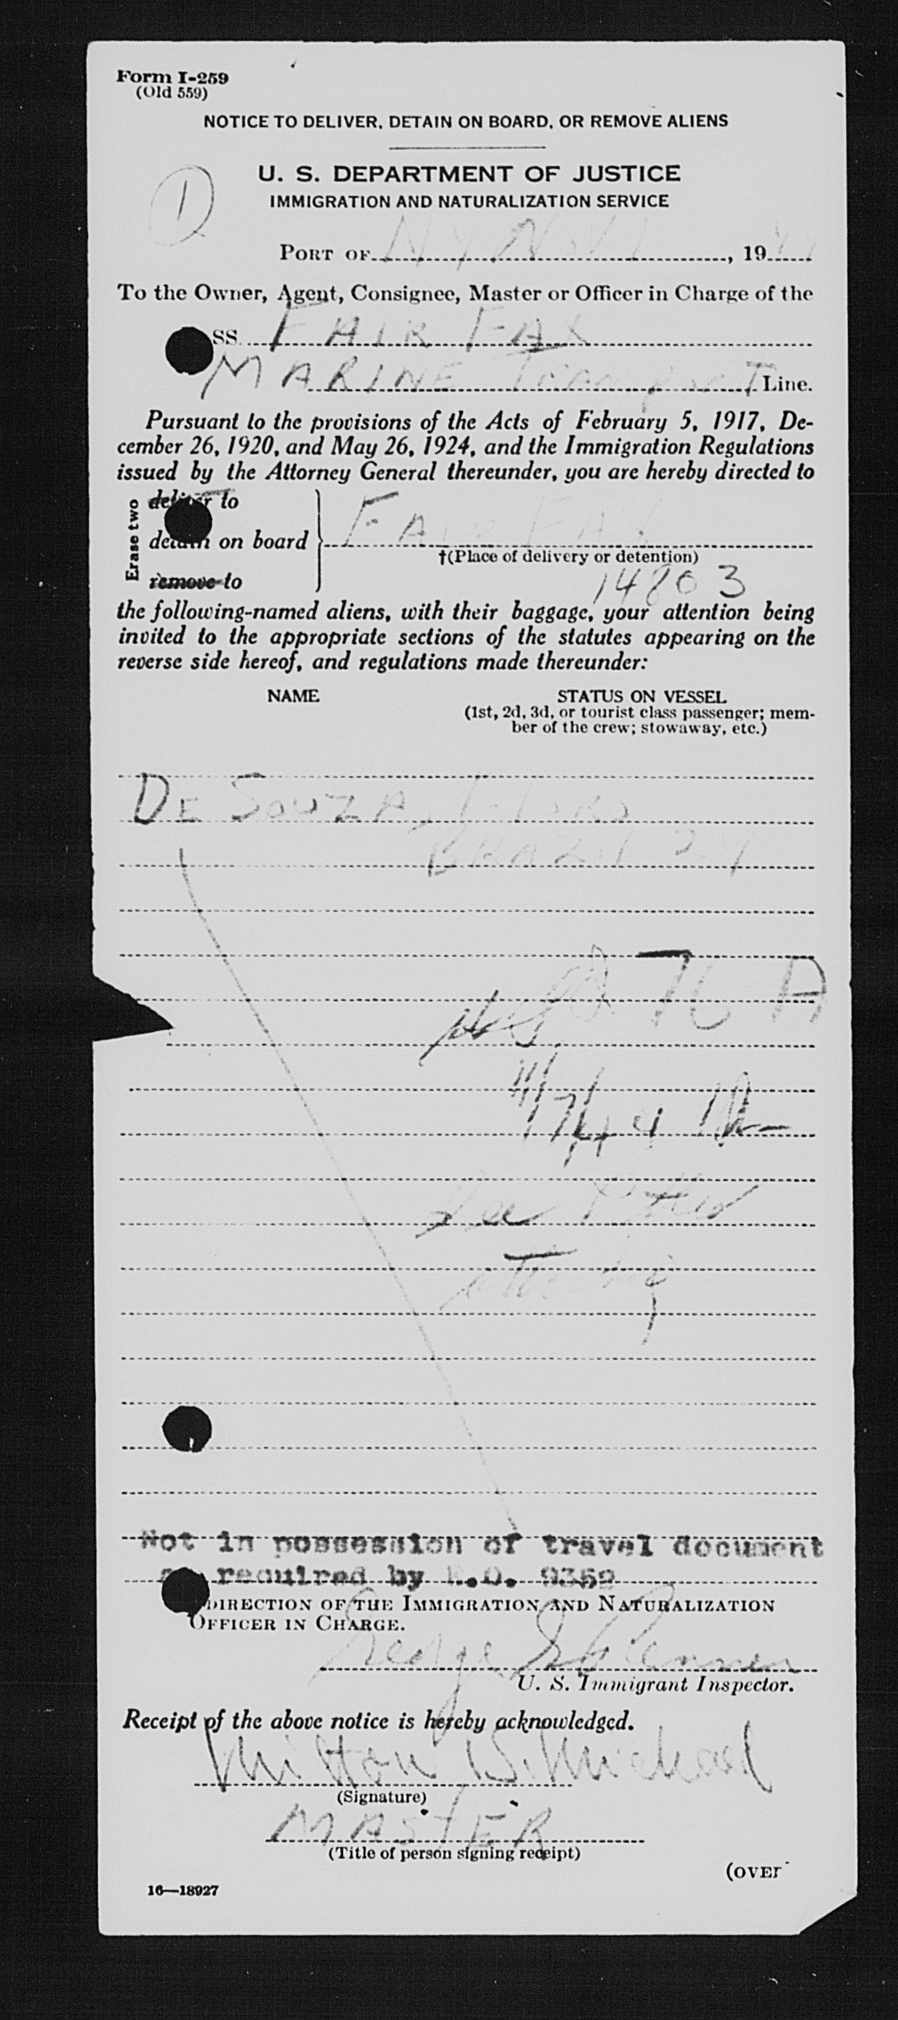 Form I-259
(Old 559)
NOTICE TO DELIVER, DETAIN ON BOARD, OR REMOVE ALIENS
U. S. DEPARTMENT OF JUSTICE
IMMIGRATION AND NATURALIZATION SERVICE
1
PORT OF NY Nov 1, 19
To the Owner, Agent, Consignee, Master or Officer in Charge of the
SS. FAIR FAX
MARINE TRANSPORT Line.
Pursuant to the provisions of the Acts of February 5, 1917, De-
cember 26, 1920, and May 26, 1924, and the Immigration Regulations
issued by the Attorney General thereunder, you are hereby directed to
Erase two
deliver to
detain on board FAIR FAX
†(Place of delivery or detention)
remove to 14803
the following-named aliens, with their baggage, your attention being
invited to the appropriate sections of the statutes appearing on the
reverse side hereof, and regulations made thereunder:
NAME STATUS ON VESSEL
(1st, 2d, 3d, or tourist class passenger; mem-
ber of the crew; stowaway, etc.)
DE SOUZA,
BRAZIL 24
76 A
11/7/44
See
Not in possession of travel document
as required by E.O. 9352
DIRECTION OF THE IMMIGRATION AND NATURALIZATION
OFFICER IN CHARGE.
George
U. S. Immigrant Inspector.
Receipt of the above notice is hereby acknowledged.
Milton B. Michael
(Signature)
MASTER
(Title of person signing receipt)
(OVER
16—18927